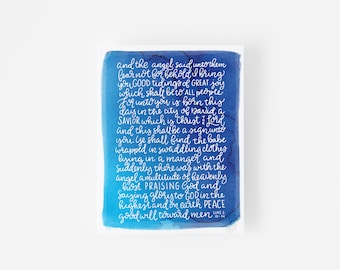 and the angel said unto them
fear not for behold, I bring
you GOOD tidings of GREAT joy
which shall be to ALL people
For unto you is born this
day in the city of David a
SAVIOR which is Christ the Lord
and this shall be a sign unto
you: Ye shall find the babe
wrapped in swaddling clothes
lying in a manger and
suddenly there was with the
angel a multitude of heavenly
host PRAISING God and
saying glory to GOD in the
highest and on earth PEACE
good will toward men LUKE 2
10-14